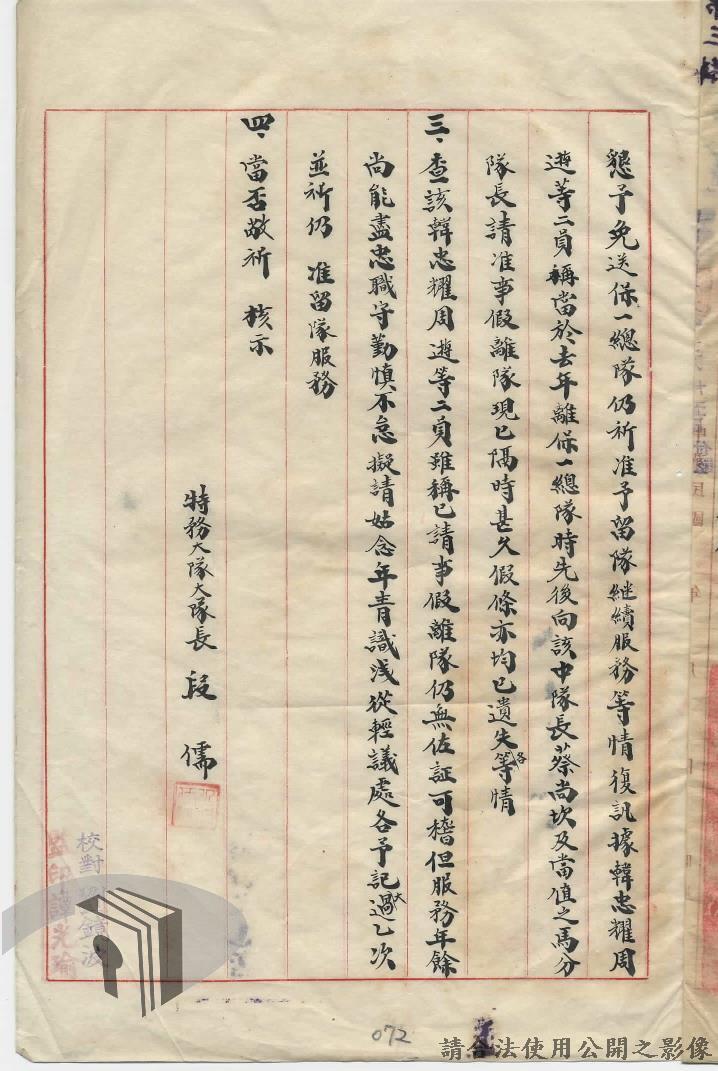 懇予免送保一總隊仍祈准予留隊繼續服務等情復訊據韓忠耀周
遊等二員稱當於去年離保一總隊時先後向該中隊長蔡尚坎及當值之馬分
隊長請准事假離隊現已隔時甚久假條亦均已遺失等各情
三、查該韓忠耀周遊等二員雖稱已請事假離隊仍無佐証可稽但服務年餘
尚能盡忠職守勤慎不怠擬請姑念年青識淺從輕議處各予記大過乙次
並祈仍 准留隊服務
四、當否敬祈 核示
特務大隊大隊長 段 儒
校對
監印譚光瑜
072
請合法使用公開之影像